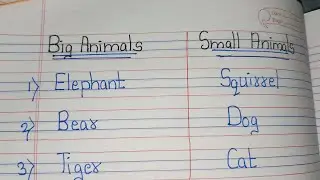 Big Animals Small Animals
1) Elephant Squirrel
2) Bear Dog
3) Tiger Cat